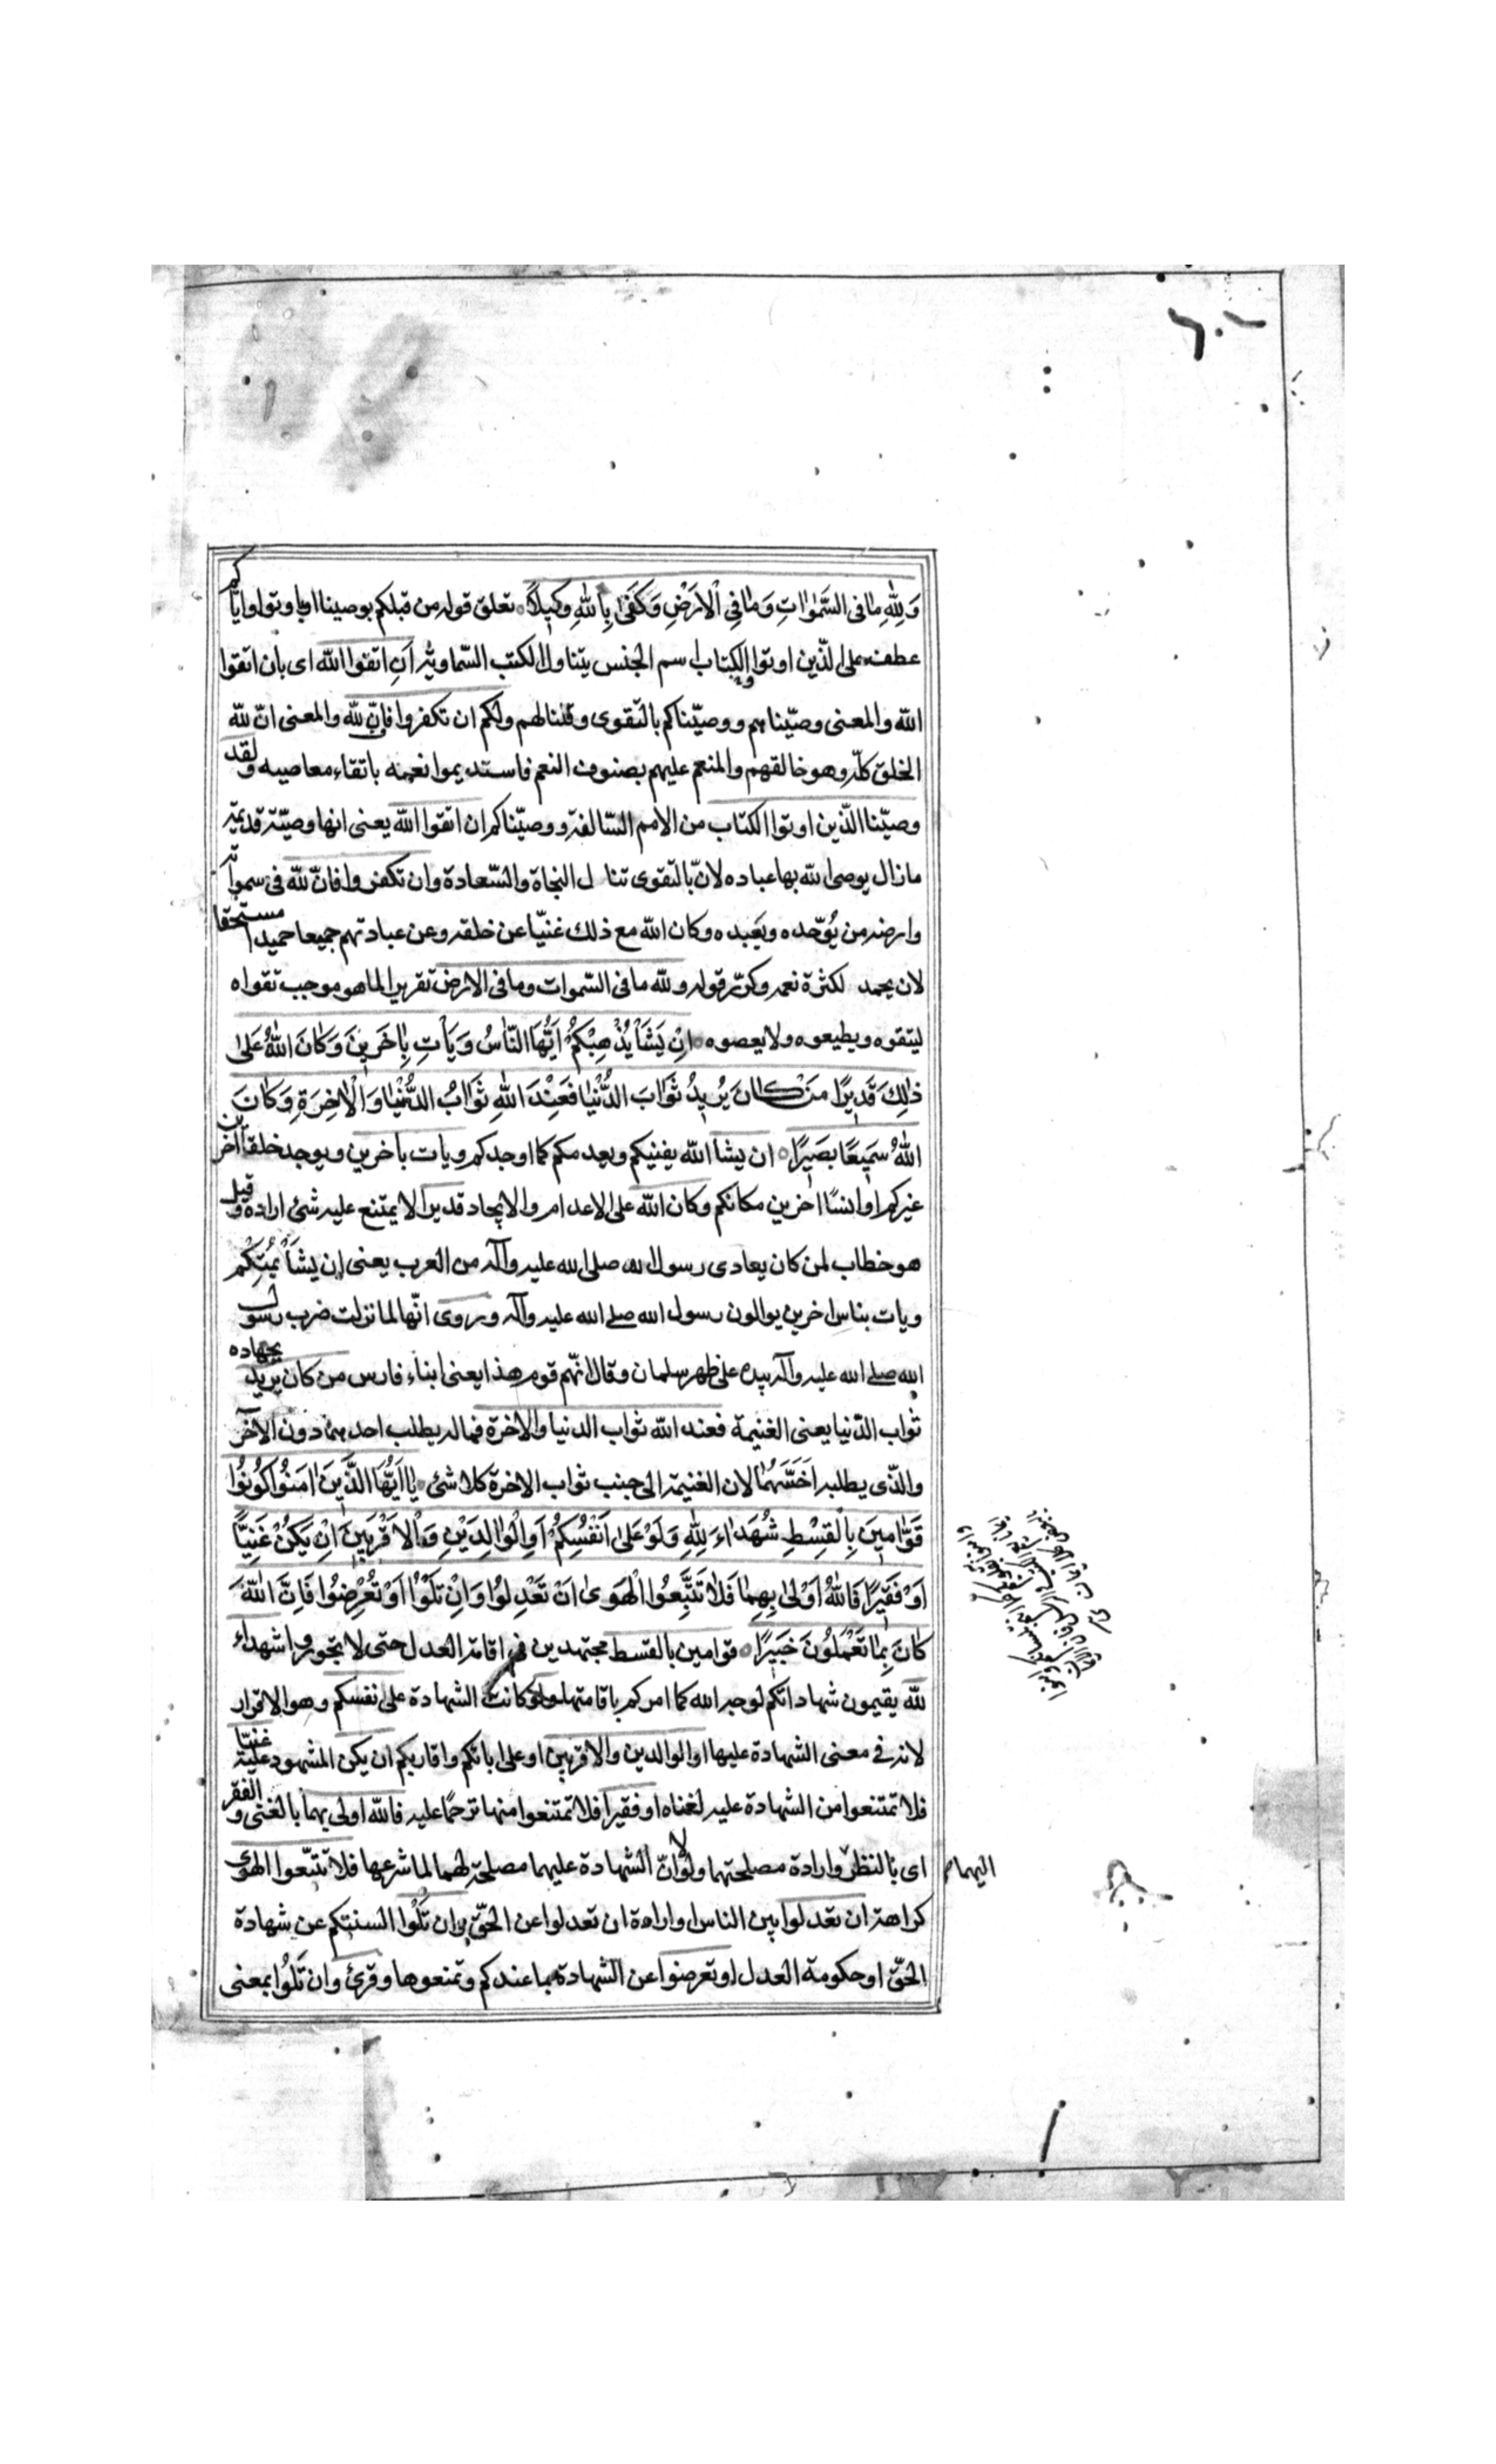 وَلِلّٰهِ مٰا فى السَّمٰوٰاتِ وَمٰا فِى الْاَرْضِ وَكَفىٰ بِاللّٰهِ وَكِيلًا تعلق قوله من قبلكم بوصينا او باوتوا واياكم
عطف على الّذين اوتوا والكتاب اسم الجنس يتناول الكتب السّماويّة اَنِ اتقوا اللّٰه اى بان اتقوا
اللّٰه والمعنى وصّيناهم ووصّيناكم بالتقوى وقلنا لهم ولكم ان تكفروا فان للّٰه والمعنى انّ للّٰه
الخلق كلّه وهو خالقهم والمنعم عليهم بصنوف النعم فاستديموا نعمه باتقاء معاصيه ولقد
وصيّنا الّذين اوتوا الكتاب من الامم السّالفة ووصيّناكم ان اتقوا اللّٰه يعنى انها وصيّة قديمة
مازال يوصى اللّٰه بها عباده لانّ بالتقوى تنال النجاة والسّعادة وان تكفروا فانّ للّٰه فى سمواته
وارضه من يُوَحّده ويعبده وكان اللّٰه مع ذلك غنيّا عن خلقه وعن عبادتهم جميعا حميدا مستحقا
لان يحمد لكثرة نعمه وكرّر قوله وللّٰه ما فى السّموات وما فى الارض تقريرا لما هو موجب تقواه
ليتقوه ويطيعوه ولا يعصوه اِنْ يَشَأْ يُذْهِبْكُمْ اَيُّهَا النّٰاسُ وَيَأْتِ بِاٰخَرِينَ وَكٰانَ اللّٰهُ عَلىٰ
ذٰلِكَ قَدِيرًا مَنْ كٰانَ يُرِيدُ ثَوٰابَ الدُّنْيٰا فَعِنْدَ اللّٰهِ ثَوٰابُ الدُّنْيٰا وَالْاٰخِرَةِ وَكٰانَ
اللّٰهُ سَمِيعًا بَصِيرًا ان يشا اللّٰه يفنيكم ويعدمكم كما اوجدكم ويات باخرين ويوجد خلقا اخرين
غيركم او انسًا اخرين مكانكم وكان اللّٰه على الاعدام والايجاد قديرا لا يمتنع عليه شئ اراده وقيل
هو خطاب لمن كان يعادى رسول الله صلى الله عليه وآله من العرب يعنى اِن يشَأ يُمِتْكُم
ويات بناس اخرين يوالون رسول الله صلى الله عليه وآله وروى انّها لما نزلت ضرب رسول
الله صلى الله عليه وآله بيده على ظهر سلمان وقال انّهم قوم هذا يعنى ابناء فارس من كان يريد بجهاده
ثواب الدّنيا يعنى الغنيمة فعند اللّٰه ثواب الدنيا والاخرة فماله يطلب احدهما دون الآخر
والّذى يطلبه اَخَسّهُما لان الغنيمة الى جنب ثواب الاخرة كلا شئ يٰا اَيُّهَا الَّذِينَ اٰمَنُوا كُونُوا
قَوّٰامِينَ بِالْقِسْطِ شُهَدٰاءَ لِلّٰهِ وَلَوْ عَلىٰ اَنْفُسِكُمْ اَوِ الْوٰالِدَيْنِ وَالْاَقْرَبِينَ اِنْ يَكُنْ غَنِيًّا
اَوْ فَقِيرًا فَاللّٰهُ اَوْلىٰ بِهِمٰا فَلٰا تَتَّبِعُوا الْهَوىٰ اَنْ تَعْدِلُوا وَاِنْ تَلْوُا اَوْ تُعْرِضُوا فَاِنَّ اللّٰهَ
كٰانَ بِمٰا تَعْمَلُونَ خَبِيرًا قوامين بالقسط مجتهدين فى اقامة العدل حتى لا تجوروا شهداء
للّٰه يقيمون شهاداتكم لوجه الله كما امركم باقامتها ولو كانت الشهادة على نفسكم وهو الاقرار
لانه فى معنى الشهادة عليها او الوالدين والاقربين او على ابائكم واقاربكم ان يكن المشهود عليه غنيّا
فلا تمتنعوا من الشهادة عليه لغناه او فقيرا فلا تمتنعوا منها ترحمًا عليه فاللّٰه اولى بهما بالغنى والفقر
اى بالنظر وارادة مصلحتهما ولولا انّ الشهادة عليهما مصلحة لهما لما شرعها فلا تتبّعوا الهوى
اليهما
كراهة ان تعدلوا بين الناس او ارادة ان تعدلوا عن الحقّ وان تَلْوُا السنتكم عن شهادة
الحقّ او حكومة العدل او تعرضوا عن الشهادة بما عندكم وتمنعوها وقرئ وان تَلُوا بمعنى